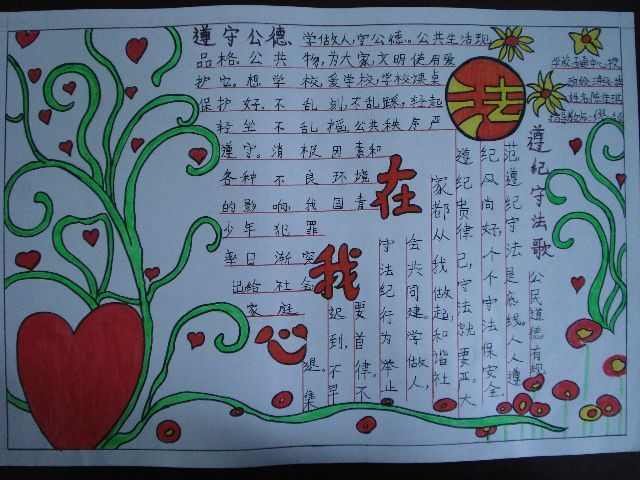 遵守公德
学做人,守公德。公共生活规
品格。公共物,为大家,文明使用爱
护它。想学校,爱学校,学校课桌
保护好。不乱刻,不乱踩,轻起
轻坐不乱摇。公共秩序严
遵守。消极因素和
各种不良环境
的影响,我国青
少年犯罪
率日渐突
出给社会
家庭
法
在
我
心
遵纪守法歌
公民道德有规
范遵纪守法是底线。人人遵
纪风尚好,个个守法保安全。
遵纪贵律己,守法就要严。大
家都从我做起,和谐社
会共同建。学做人,
守法纪行为举止
要首律。不
迟到,不早